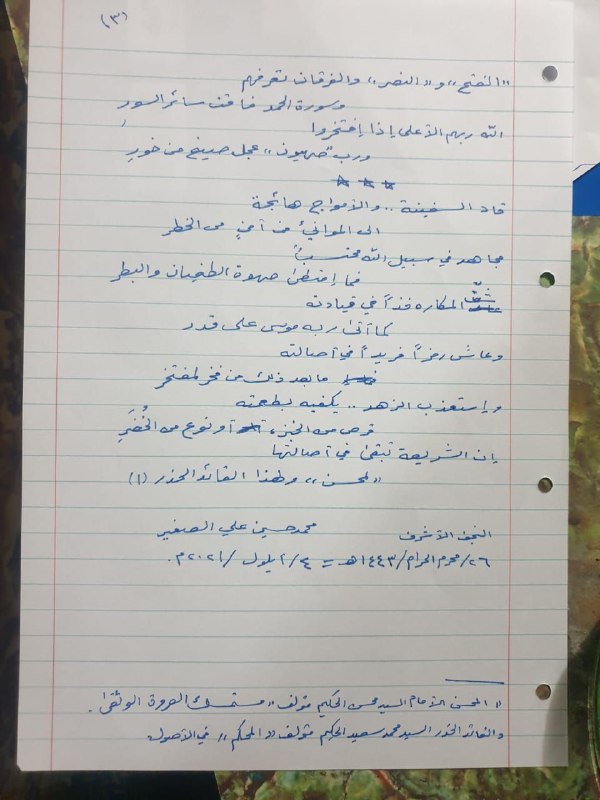 (٣)
"الفتح" و "النصر" والفرقان تعرفهم
وسورة الحمد فاقت سائر السورِ
الله ربهم الأعلى إذا إفتخروا
ورب "صهيون" عجل صيغ من خورِ
★ ★ ★
قاد السفينة .. والأمواج هائجة
الى الموانئ من آمنٍ من الخطر
مجاهد في سبيل الله محتسباً
فما إمتطى صهوة الطغيان والبطر
شقّ المكاره فذاً في قيادته
كما أتى ربه موسى على قدر
وعاش رمزاً فريداً في أصالته
ما بعد ذلك من فخر لمفتخر
وإستعذب الزهد .. يكفيه بطعمته
قرص من الخبز، أو نوع من الخُضَرِ
إن الشريعة تبقى في أصالتها
"لمحسن" ولهذا القائد الحذر (١)
النجف الأشرف محمد حسين علي الصغير
٢٦/محرم الحرام/١٤٤٣هـ = ٤/أيلول/٢٠٢١م.
المحسن الإمام السيد محسن الحكيم مؤلف "مستمسك العروة الوثقى".
والقائد الحذر السيد محمد سعيد الحكيم مؤلف "المحكم" في الأصول